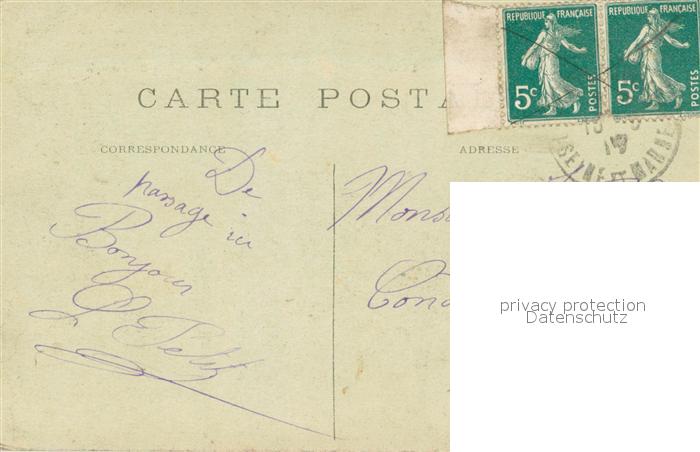 REPUBLIQUE FRANÇAISE
REPUBLIQUE FRANÇAISE
5c POSTES
5c POSTES
CARTE POSTA
CORRESPONDANCE
ADRESSE
19
SEINE ET MARNE
De
passage ici
Bonjour
Mons
Cond
privacy protection
Datenschutz